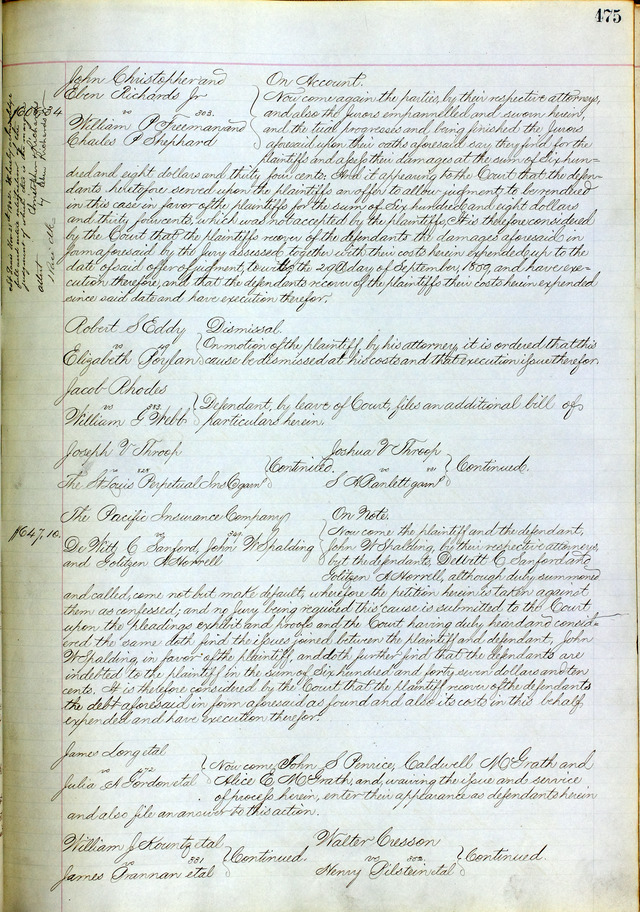 475
John Christopher and
Eben Richards Jr
vs 303.
William P Freeman and
Charles F Shephard
On Account.
Now come again the parties, by their respective attorneys,
and also the Jurors empannelled and sworn herein,
and the trial progresses and being finished the Jurors
aforesaid upon their oaths aforesaid say they find for the
plaintiffs and assess their damages at the sum of Six hun-
dred and eight dollars and thirty four cents; And it appearing to the Court that the defen-
dants heretofore served upon the plaintiffs an offer to allow judgment to be rendered
in this case in favor of the plaintiffs for the sum of Six hundred and eight dollars
and thirty four cents, which was not accepted by the plaintiffs, It is therefore considered
by the Court that the plaintiffs recover of the defendants the damages aforesaid in
form aforesaid by the jury assessed, together with their costs herein expended up to the
date of said offer of judgment, to wit, the 29th day of September, 1859, and have exe-
cution therefor, and that the defendants recover of the plaintiffs their costs herein expended
since said date and have execution therefor.
Robert S Eddy
vs
Elizabeth Foylan
Dismissal.
On motion of the plaintiff by his attorney, it is ordered that this
cause be dismissed at his costs and that execution issue therefor.
Jacob Rhodes
vs 313.
William G Webb
Defendant, by leave of Court, files an additional bill of
particulars herein.
Joseph V Throop
vs 328
The St Louis Perpetual Ins Co garnd
Continued.
Joshua V Throop
vs
S A Ranlett garnd
Continued.
$647,10.
The Pacific Insurance Company
vs
De Witt C Sanford, John W Spalding
and Golitzen A Horrell
On Note.
Now come the plaintiff and the defendant,
John W Spalding, by their respective attorneys,
but the defendants, DeWitt C Sanford and
Golitzen A Horrell, although duly summoned
and called, come not but make default; wherefore the petition herein is taken against
them as confessed, and no jury being required this cause is submitted to the Court
upon the pleadings exhibit and proofs and the Court having duly heard and consid-
ered the same doth find the issues joined between the plaintiff and defendant, John
W Spalding, in favor of the plaintiff, and doth further find that the defendants are
indebted to the plaintiff in the sum of Six hundred and forty seven dollars and ten
cents. It is therefore considered by the Court that the plaintiff recover of the defendants
the debt aforesaid in form aforesaid as found and also its costs in this behalf
expended and have execution therefor.
James Long et al
vs 372
Julia A Gordon et al
Now come, John S Penrice, Caldwell McGrath and
Alice E McGrath, and, waiving the issue and service
of process herein, enter their appearance as defendants herein
and also file an answer to this action.
William J Kountz et al
331
James Trannan et al
Continued.
Walter Cresson
vs 302.
Henry Pilstein et al
Continued.